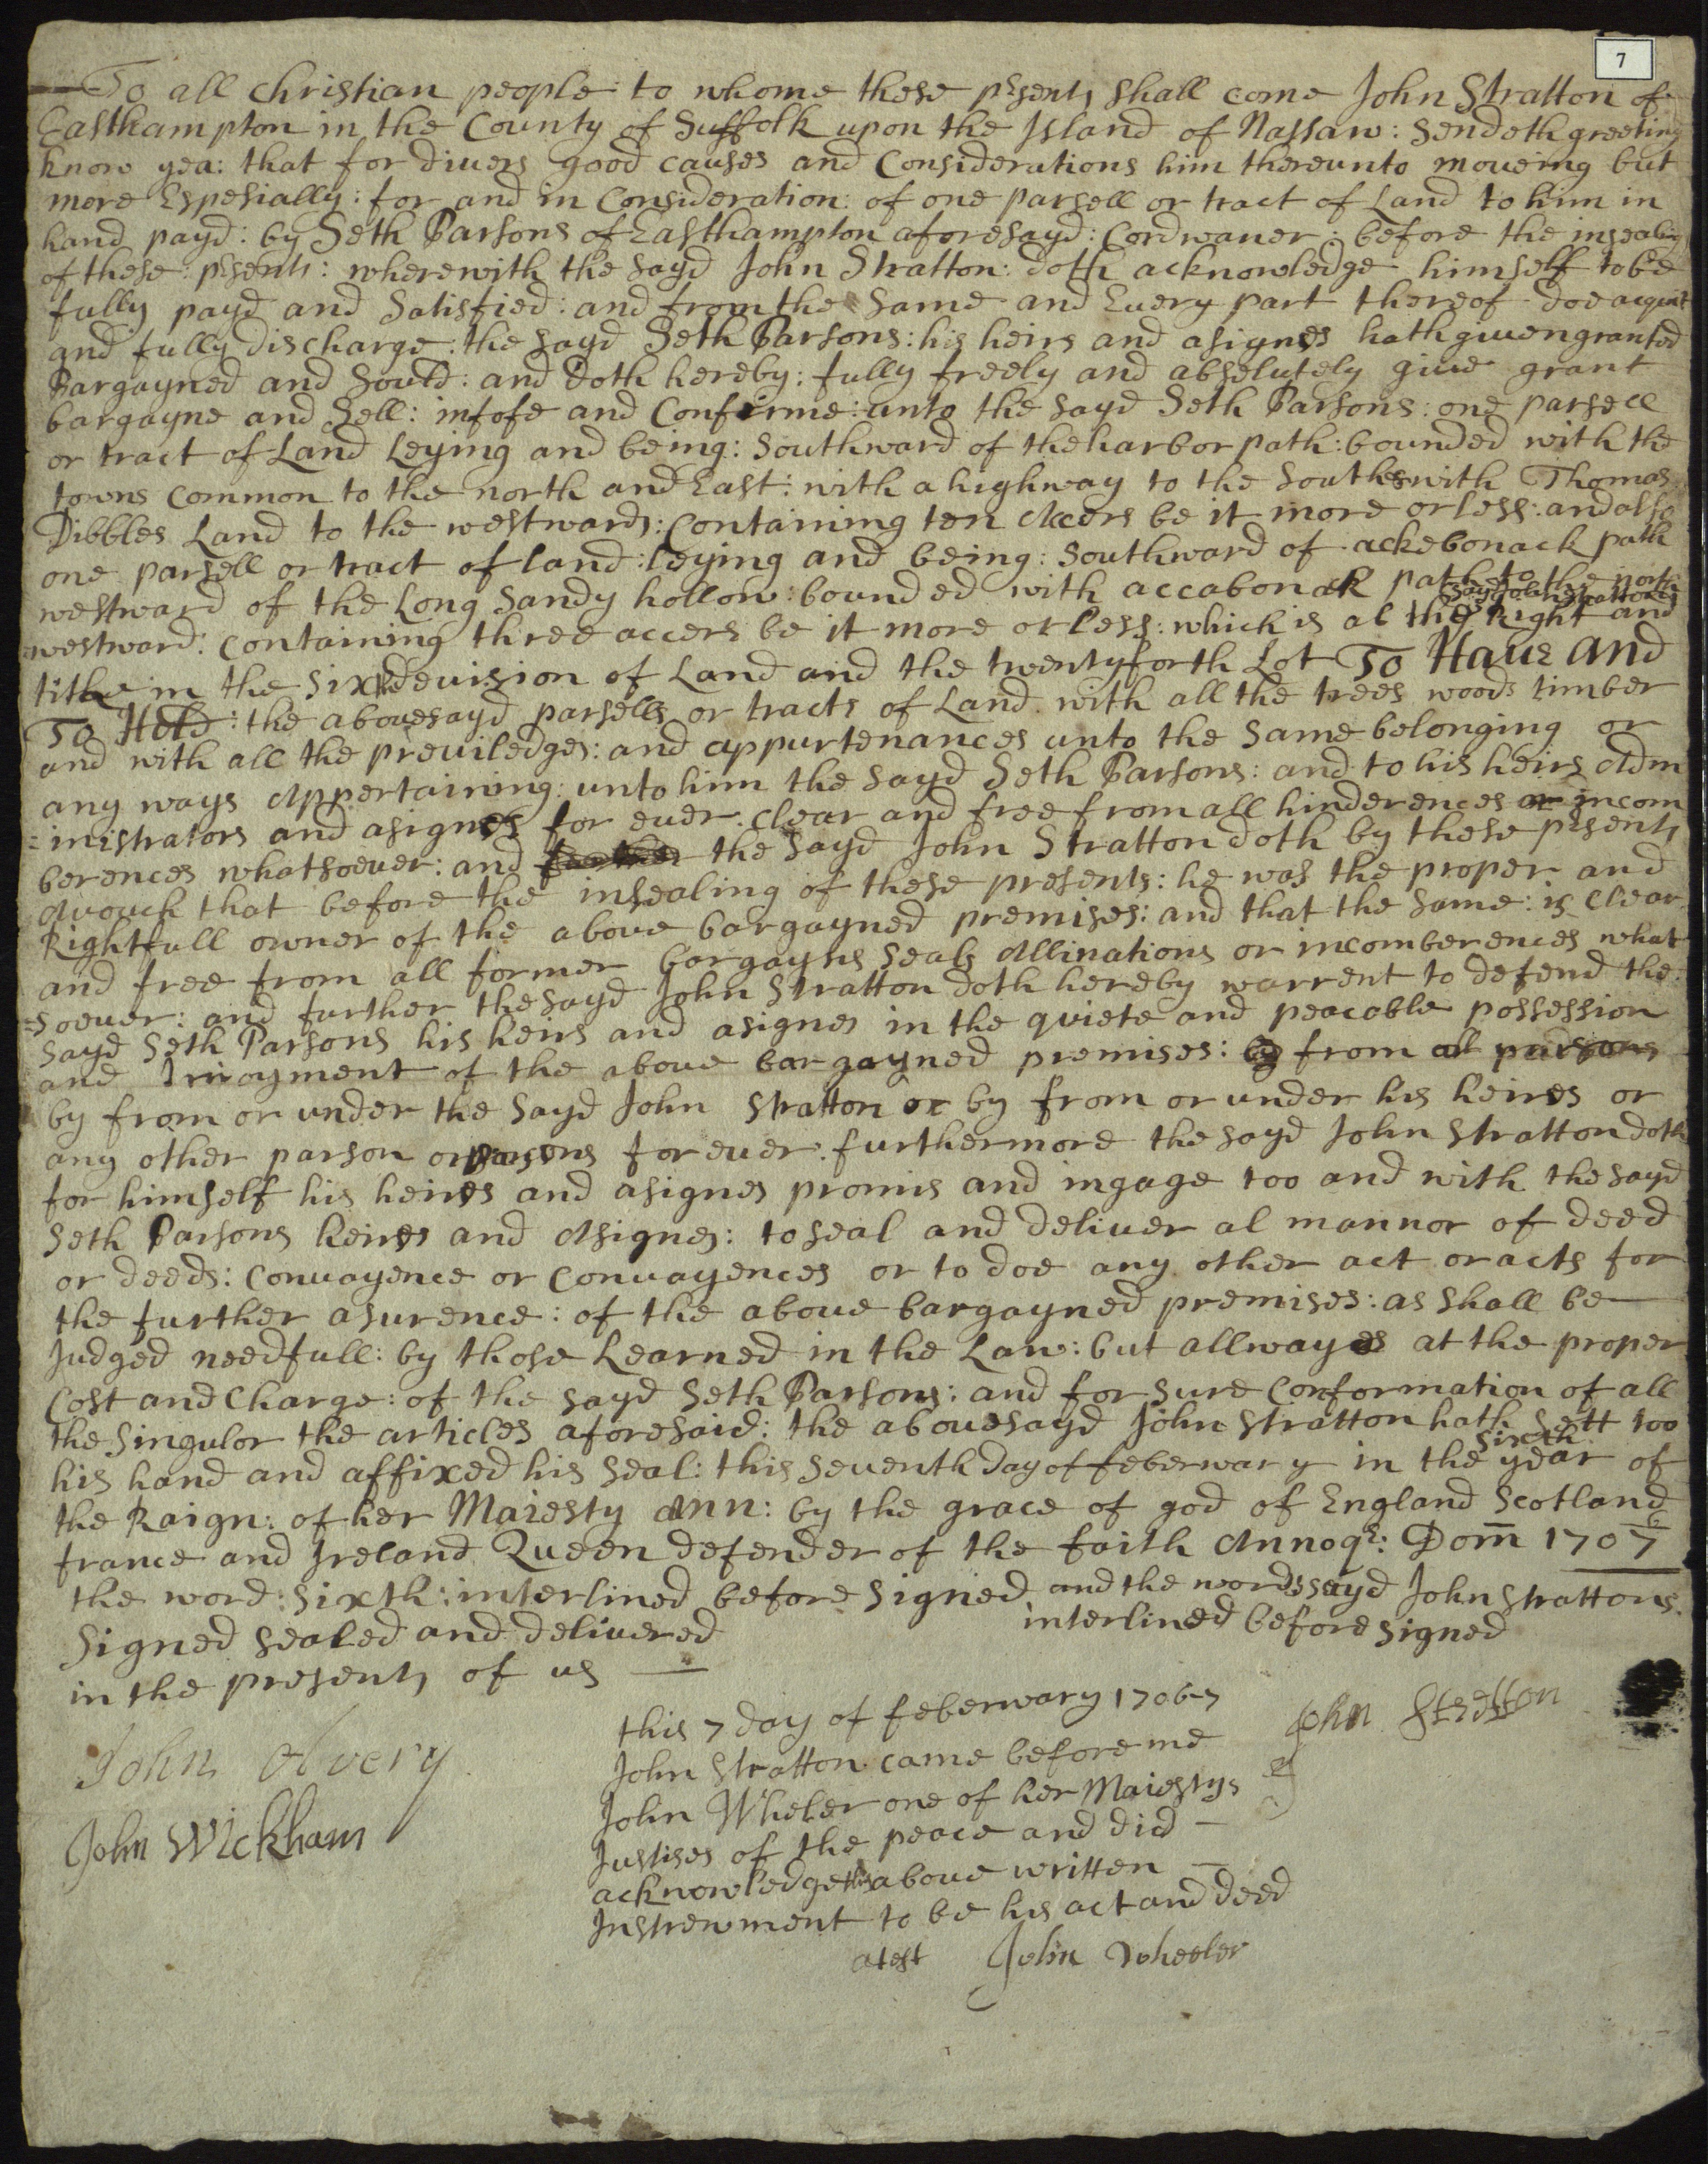 7
To all Christian people: to whome these psents shall come John Stratton of
Easthampton in the County of Suffolk upon the Island of Nassaw: Sendeth greeting
know yea: that for divers good causes and Considerations him thereunto moveing but
more Espesially: for and in Consideration: of one parsell or tract of Land to him in
hand payd: by Seth Parsons of Easthampton aforesayd: Cordwaner: before the insealing
of these: psents: wherewith the sayd John Stratton: doth acknowledge himself to be
fully payd and Satisfied: and from the Same and Every part thereof doe acquit
and fully discharge: the sayd Seth Parsons: his heirs and asignes hath given granted
Bargayned and Sould: and doth hereby: fully freely and absolutely give grant
bargayne and Sell: infofe and Confirme: unto the sayd Seth Parsons: one parsell
or tract of Land Leying and being: Southward of the harbor path: bounded with the
towns Common to the north and East: with a highway to the South & with Thomas
Dibbles Land to the westward: Containing ten Accers be it more or less: and also
one parsell or tract of land: leying and being: Southward of ackebonack path
westward of the Long Sandy hollow: bounded with accabonack path to the north
sayd John Strattons
westward: Containing three accers be it more or less: which is al the Right and
title in the Six devision of Land and the twentyforth Lot To Have and
To Hold: the abovesayd parsells or tracts of Land with all the trees woods timber
and with all the previledges: and appurtenances unto the Same belonging or
any ways Appertaining: unto him the sayd Seth Parsons: and to his heirs Adm
=inistrators and asignes for ever. clear and free from all hinderences or incom
berences whatsoever: and the sayd John Stratton doth by these psents
Avouch that before the insealing of these presents: he was the proper and
Rightfull owner of the above bargayned premises: and that the same: is Clear
and free from all former bargayns Seals Allinations or incomberences what
=soever: and further the sayd John Stratton doth hereby warrent to defend the:
sayd Seth Parsons his heirs and asignes in the quiete and peacable possession
and Inioyment of the above bargayned premises: from all parsons
by from or under the sayd John Stratton or by from or under his heires or
any other parson or parsons for ever. furthermore the sayd John Stratton doth
for himself his heires and asignes promis and ingage too and with the sayd
Seth Parsons heires and Asignes: to seal and deliver al mannor of deed
or deeds: Convayence or Convayences or to doe any other act or acts for
the further asurence: of the above bargayned premises: as shall be
Judged needfull: by those Learned in the Law: but allwayes at the proper
Cost and Charge: of the sayd Seth Parsons: and for sure Conformation of all
the Singulor the articles aforesaid: the abovesayd John Stratton hath Sett too
sixth
his hand and affixed his Seal: this Seventh day of feberwary in the year of
the Raign: of her Maiesty Ann: by the grace of god of England Scotland
france and Ireland Queen defender of the faith Annoqe: Dom 1706/7
the word: Sixth: interlined before Signed and the words sayd John Strattons
interlined before signed
Signed sealed and delivered
in the presents of us
John Avery
John Wickham
this 7 day of feberwary 1706-7
John Stratton came before me
John Wheler one of her Maiestys
Justises of the peace and did
acknowledge this above written
Instrewment to be his act and deed
atest John Wheeler
John Stratton